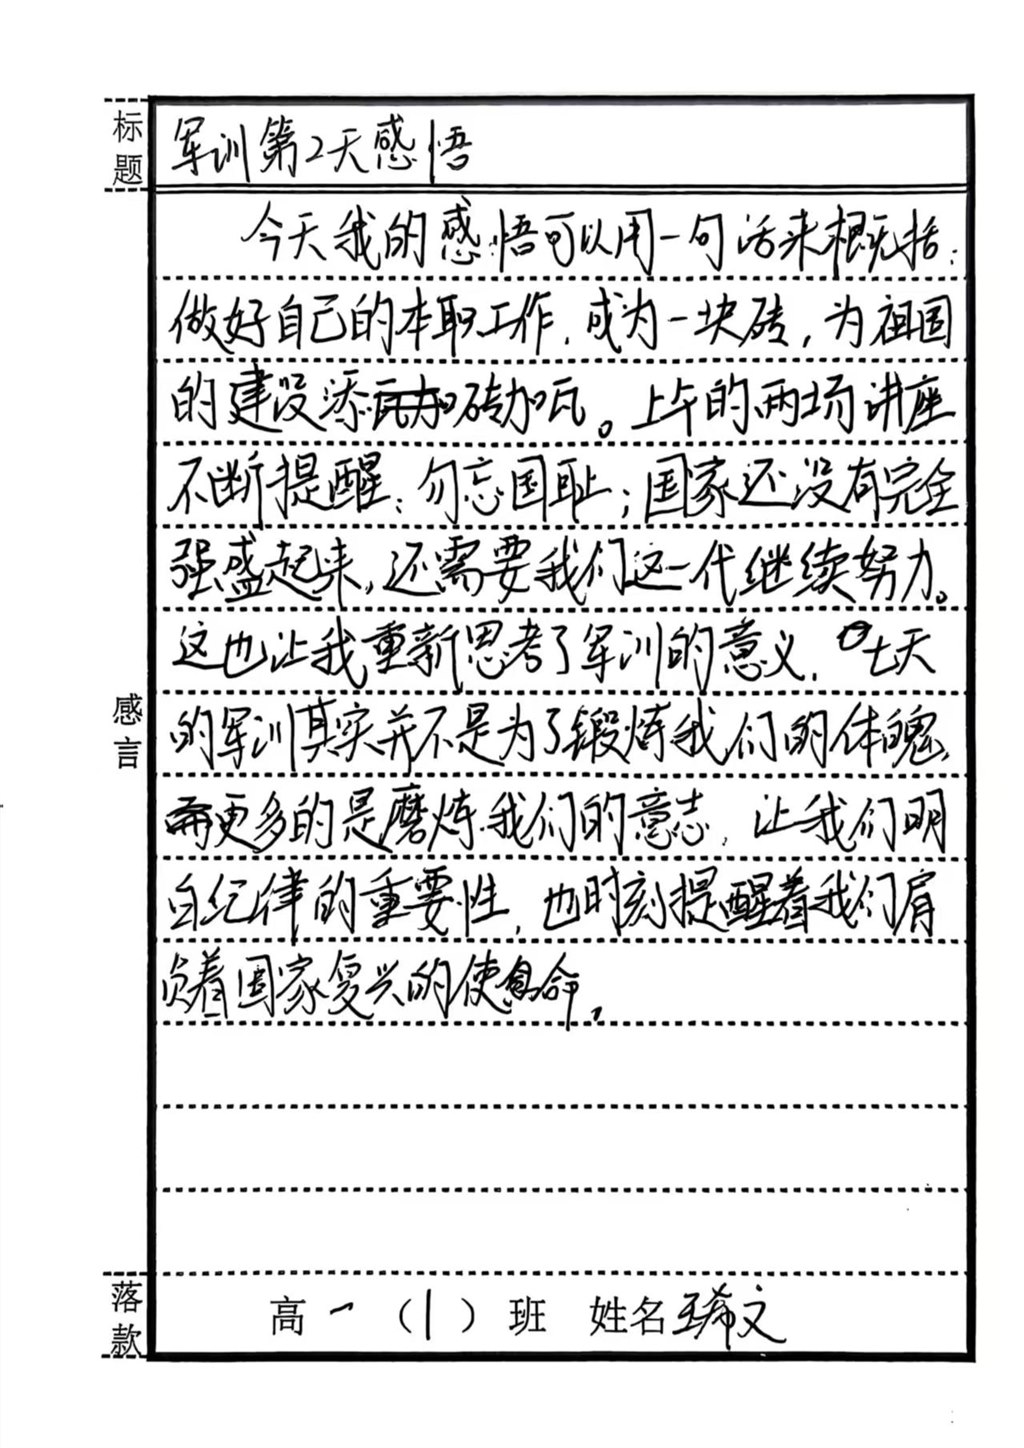 标题
军训第2天感悟
今天我的感悟可以用一句话来概括：
做好自己的本职工作，成为一块砖，为祖国
的建设添砖加瓦。上午的两场讲座
不断提醒：勿忘国耻；国家还没有完全
强盛起来，还需要我们这一代继续努力。
这也让我重新思考了军训的意义，七天
的军训其实并不是为了锻炼我们的体魄，
而更多的是磨炼我们的意志，让我们明
白纪律的重要性，也时刻提醒着我们肩
负着国家复兴的使命。
感言
落款
高一（1）班 姓名王希文